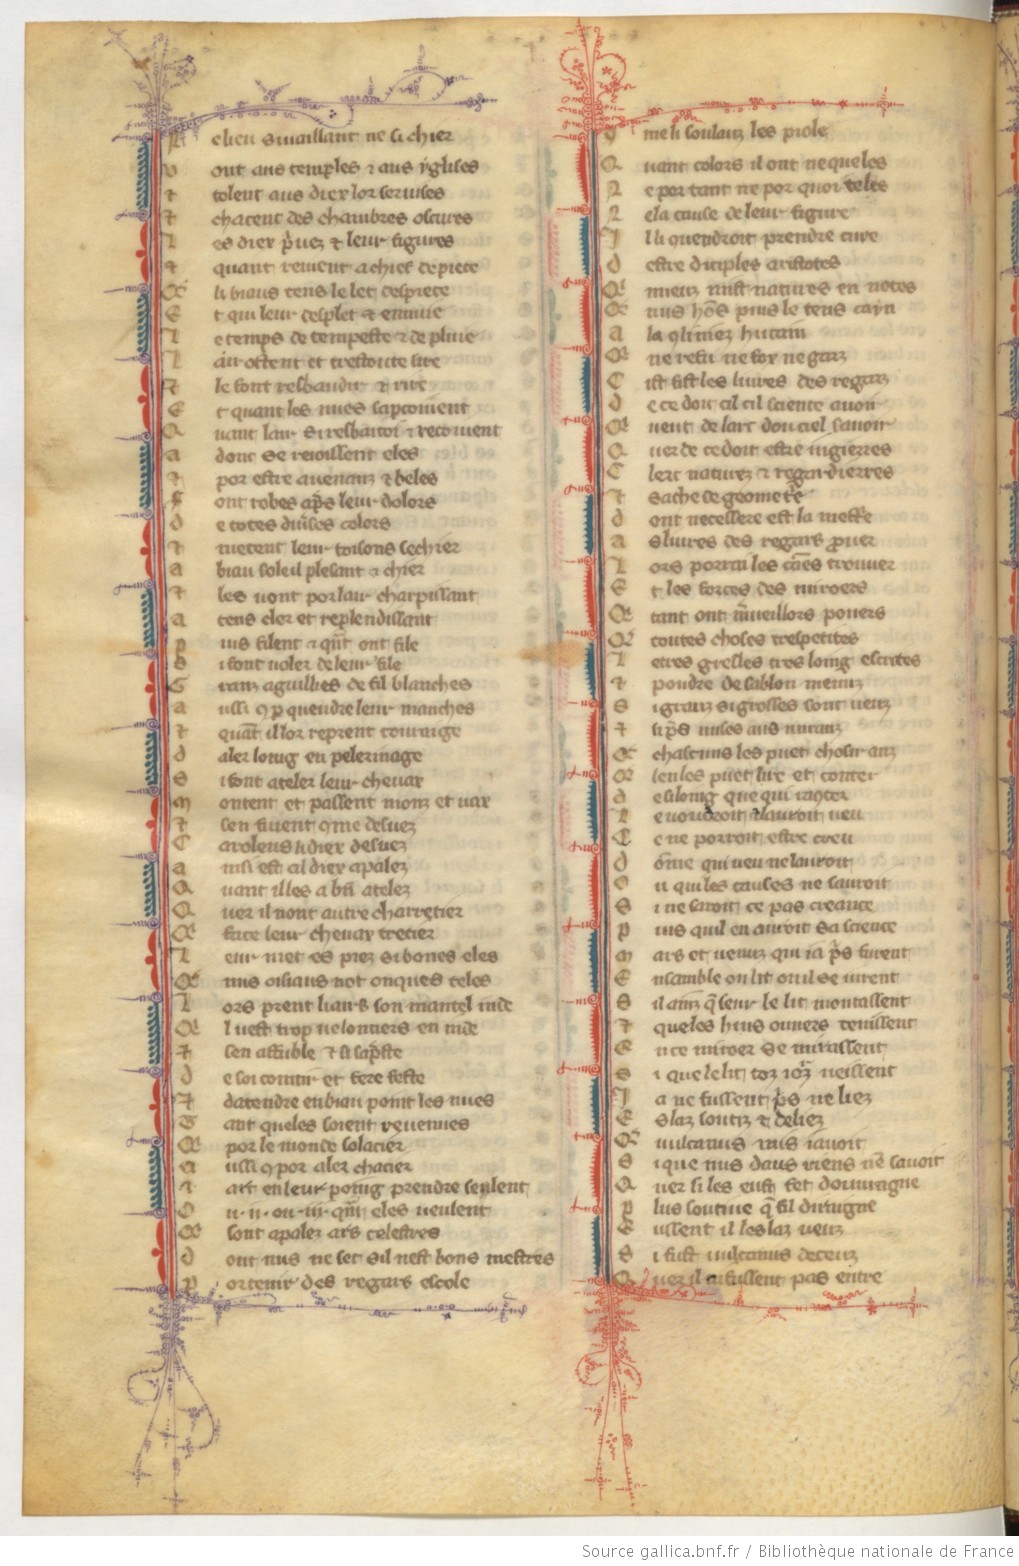 N e lieu si vaillant ne si chier
v ont aus temples et aus yglises
t tolent aus diex lor servises
t chacent des chambres oscures
L es diex privez et leur figures
t quant revient a chief de piece
li biaus tens le let despiece
E t qui leur desplet et ennuie
L e temps de tempeste et de pluie
L air ostent et trestoute s ire
t le font resbaudir et rire
E t quant les nues sapcoivent
Q uant lair si resbaudi recoivent
a donc se resoissent eles
t por estre avenanz et beles
F ont robes apres leur dolors
d e totes diverses colors
t metent leur toisons sechier
a biau soleil plesant et chier
t les vont por lair charpissant
a tens cler et resplendissant
p uis filent et quant ont file
S i font voler de leur file
G ranz aguillies de fil blanches
a ussi com por queudre leur manches
t quant il lor reprent couraige
d aler loing en pelerinage
S i font ateler leur chevax
m ontent et passent monz et vax
t sen fuient come desvez
C ar oleus li diex des vez
a insi est al diex apelez
Q uant il les a bien atelez
Q uer il nont autre charretier
face leur chevax tretier
L eur met es piez si bones eles
nus oisiaus not onques teles
L ors prent li airs son mantel inde
l vest trop volontiers en inde
t sen affuble et si sapreste
d e soi cointir et fere feste
t datendre en biau point les nues
T ant queles soient revenues
por le monde solacier
a ussi com por aler chacier
t arc en leur poing prendre seulent
O u .ii. ou .iii. quant eles veulent
sont apalez ars celestres
d ont nus ne set sil nest bons mestres
p or tenir des regars escole
me li soulauz les piole
Q uant colors il ont ne queles
N e por tant ne por quoi teles
N e la cause de leur figure
I l li quendroit prendre cure
d estre diciples aristotes
mieuz mist natures en notes
nus hons puis le tens cayn
a la qliniez hucain
ne refu ne fox ne garz
C ist fist les livres des regarz
d e ce doit cil cil science avoir
veut de larc dou ciel savoir
Q uer de ce doit estre iugierres
C lerc naturez et regardierres
t sache de geometre
d ont necessere est la mestre
a s livres des regars prouer
L ors porra les causes trouver
E t les forces des miroers
tant ont merveillors pouers
toutes choses trespetites
L etres gresles tres loing escrites
t poudre de sablon menuz
S i granz si grosses sont veuz
t si pres mises aus miranz
chascuns les puet choisir anz
len les puet lire et conter
d e si loing que qui racoter
L e voudroit lauroit veu
C e ne porroit estre creu
d ome qui veu ne lauroit
O u qui les causes ne sauroit
S i ne saroit ce pas creance
p uis quil en auroit sa science
m ars et venuz qui ia pris furent
E nsamble ou lit ou il se iurent
S il ainz que seur le lit montassent
t queles huis ouvers tenissent
E n ce miroer se mirassent
S i que le lit touz iorz veissent
I a ne fussent pris ne liez
E s laz soutiz et deliez
vulcanus mis i avoit
S i que nus daus riens nen savoit
Q uer si les eust fet douvraigne
p lus soutive que fil diraigne
E ussent il les laz veuz
S i fust vulcanus deceuz
Q uer il ni fussent pas entre
Source gallica.bnf.fr / Bibliothèque nationale de France